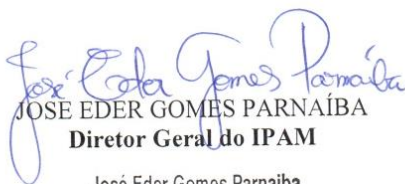 José Eder Gomes Parnaíba
JOSE EDER GOMES PARNAÍBA
Diretor Geral do IPAM
José Eder Gomes Parnaiba